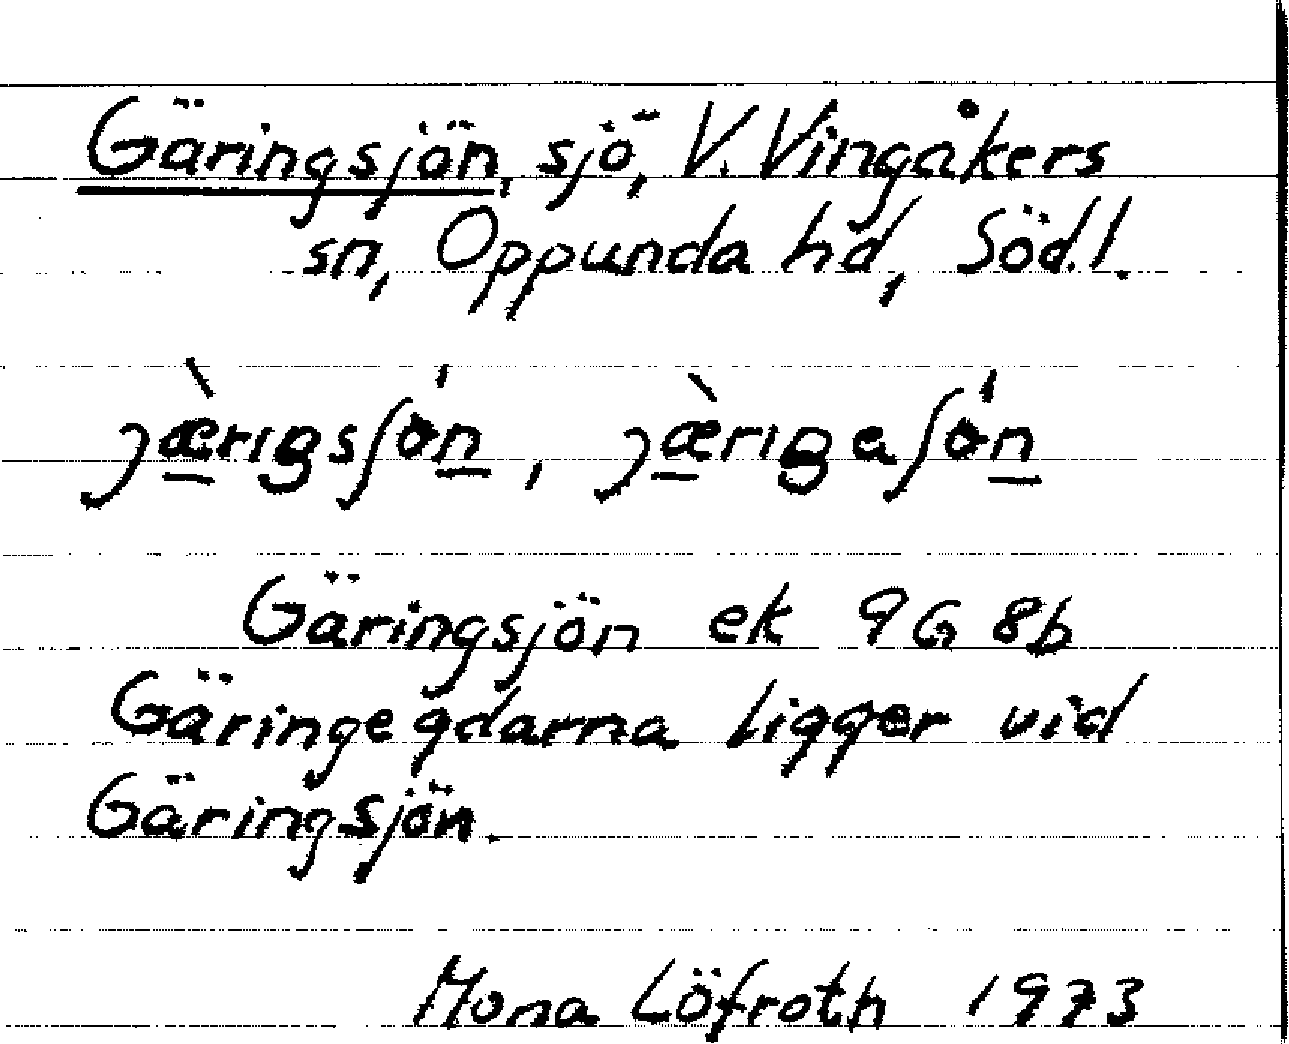 Gäringsjön, sjö, V. Vingåkers
sn, Oppunda hd, Södl.
Gäringsjön ek 9G 8b
Gäringegdarna ligger vid
Gäringsjön.
Mona Löfroth 1973